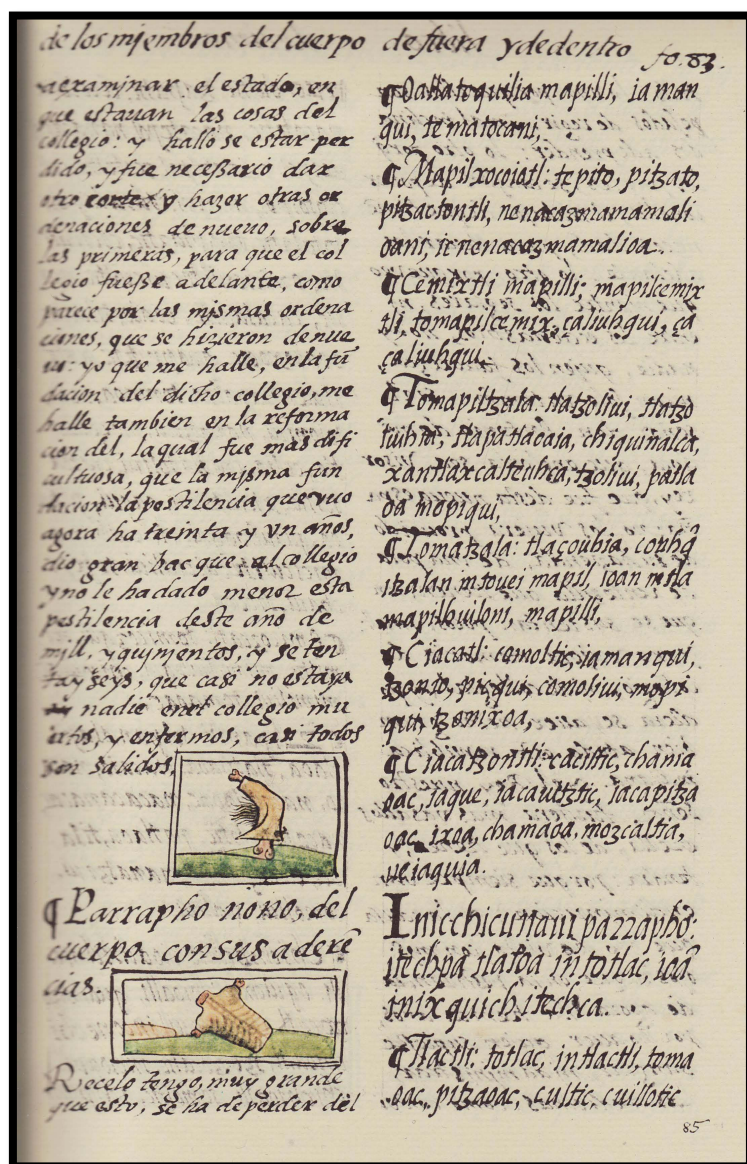 de los miembros del cuerpo de fuera y de dentro fo. 83.
a examinar el estado, en
que estauan las cosas del
collegio: y hallo se estar per
dido, y fue neceßario dar
otro corte, y hazer otras or
denaciones de nueuo, sobre
las primeras, para que el col
legio fueße adelante, como
parece por las mjsmas ordena
ciones, que se hizieron de nue
uo: yo que me halle, en la fũ
dacion del dicho collegio, me
halle tambien en la reforma
cion del, la qual fue mas difi
cultuosa, que la mjsma fun
dacion la pestilencia que vuo
agora ha treinta y vn años,
dio gran bac que al collegio
y no le ha dado menor esta
pestilencia deste año de
mill, y qujnjentos, y se ten
ta y seys, que casi no estaya
nadie en el collegio mu
ertos, y enfermos, casi todos
son salidos,
¶ Parrapho nono, del
cuerpo con sus aderẽ
cias.
Recelo tengo, muy grande
que esto, se ha de perder del
mapilli, iaman
qui, te matocani,
¶ Mapilxocoiotl: tepito, pitzato,
pitzactontli, nenacazmamamali
oani, ic nenacazmamalioa.
¶ Cemixtli mapilli; mapilcemix
tli, tomapilcemix, çaliuhqui, çã
çaliuhqui,
¶ Tomapiltzala: tlatzoliui, tlatzo
liuhia, tlapatlacaia, chiquinalca,
xantlaxcalteuhca, tzoliui, patla
oa mopiqui,
¶ Tomatzala: tlaçouhia,
itzalan mtouei mapil, ioan
mapilhuiloni, mapilli,
¶ Ciacatl: comoltic, iamanqui,
tzonio, picqui, comoliui, mopi
qui, tzonixoa,
¶ Ciacatzontli: caciltic, chama
oac, iaque, iacauitztic, iacapitza
oac, ixoa, chamaoa, mozcaltia,
ueiaquia.
Inicchicunaui parrapho:
itechpa tlatoa in totlac, ioã
inixquich itechca.
¶ Tlactli: totlac, in tlactli, toma
oac, pitzaoac, cultic, cuillotic
85